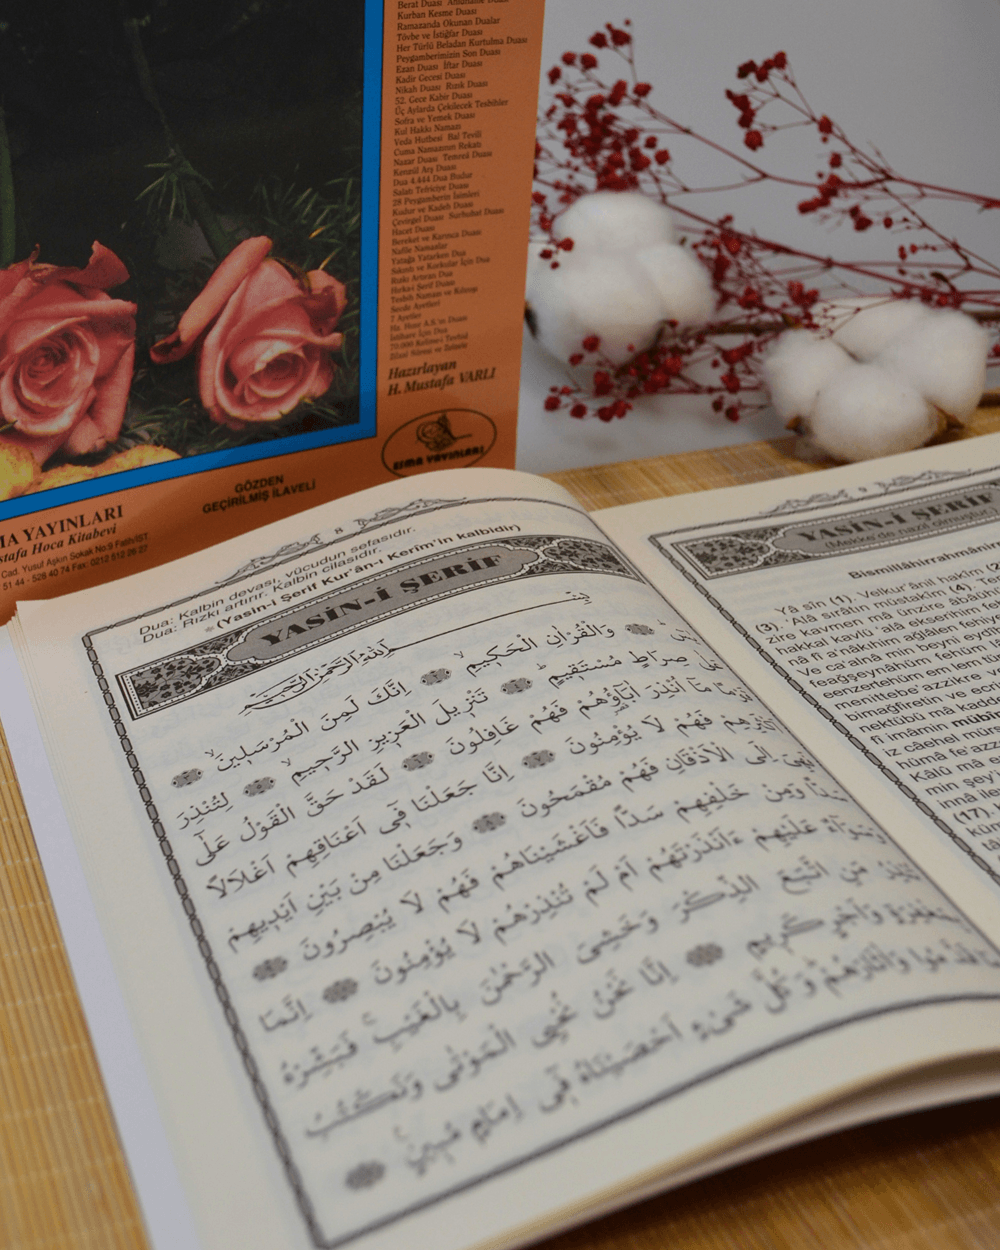 Berat Duası
Kurban Kesme Duası
Ramazanda Okunan Dualar
Tövbe ve İstiğfar Duası
Her Türlü Beladan Kurtulma Duası
Peygamberimizin Son Duası
Ezan Duası İftar Duası
Kadir Gecesi Duası
Nikah Duası Rızık Duası
52. Gece Kabir Duası
Üç Aylarda Çekilecek Tesbihler
Sofra ve Yemek Duası
Kul Hakkı Namazı
Veda Hutbesi
Cuma Namazının Rekatı
Nazar Duası
Kenzül Arş Duası
Dua 4.444 Dua Budur
Salatı Tefriciye Duası
28 Peygamberin İsimleri
Kudur ve Kadeh Duası
Çevirgel Duası
Hacet Duası
Bereket ve Karınca Duası
Nafile Namazlar
Yatağa Yatarken Dua
Sıkıntı ve Korkular İçin Dua
Rızkı Artıran Dua
Hırka-i Şerif Duası
Tesbih Namazı ve
7 Ayetler
Hazırlayan
H. Mustafa VARLI
ESMA YAYINLARI
GÖZDEN
GEÇİRİLMİŞ İLAVELİ
MA YAYINLARI
stafa Hoca Kitabevi
Cad. Yusuf Aşkın Sokak No:9 Fatih/İST.
51 44 - 528 40 74 Fax: 0212 512 26 27
8
Dua: Kalbin devası, vücudun sefasıdır.
Dua: Rızkı artırır. Kalbin cilasıdır.
*(Yasin-i Şerif Kur'ân-ı Kerîm'in kalbidir)
YASİN-İ ŞERİF
بِسْمِ اللّٰهِ الرَّحْمٰنِ الرَّحِيمِ
وَالْقُرْاٰنِ الْحَكِيمِ اِنَّكَ لَمِنَ الْمُرْسَلِينَ
عَلٰى صِرَاطٍ مُسْتَقِيمٍ تَنْزِيلَ الْعَزِيزِ الرَّحِيمِ لِتُنْذِرَ
قَوْمًا مَا اُنْذِرَ اٰبَاؤُهُمْ فَهُمْ غَافِلُونَ لَقَدْ حَقَّ الْقَوْلُ عَلٰى
اَكْثَرِهِمْ فَهُمْ لَا يُؤْمِنُونَ اِنَّا جَعَلْنَا فِى اَعْنَاقِهِمْ اَغْلَالًا
فَهِىَ اِلَى الْاَذْقَانِ فَهُمْ مُقْمَحُونَ وَجَعَلْنَا مِنْ بَيْنِ اَيْدِيهِمْ
سَدًّا وَمِنْ خَلْفِهِمْ سَدًّا فَاَغْشَيْنَاهُمْ فَهُمْ لَا يُبْصِرُونَ
وَسَوَاءٌ عَلَيْهِمْ ءَاَنْذَرْتَهُمْ اَمْ لَمْ تُنْذِرْهُمْ لَا يُؤْمِنُونَ اِنَّمَا
تُنْذِرُ مَنِ اتَّبَعَ الذِّكْرَ وَخَشِىَ الرَّحْمٰنَ بِالْغَيْبِ فَبَشِّرْهُ
بِمَغْفِرَةٍ وَاَجْرٍ كَرِيمٍ اِنَّا نَحْنُ نُحْيِى الْمَوْتٰى وَنَكْتُبُ
مَا قَدَّمُوا وَاٰثَارَهُمْ وَكُلَّ شَىْءٍ اَحْصَيْنَاهُ فِى اِمَامٍ مُبِينٍ
9
YASİN-İ ŞERİF
Mekke'de nazil olmuştur
Bismillâhirrahmânir
Yâ sîn (1). Velkur'ânil hakîm (2
(3). 'Alâ sırâtın müstakîm (4). Te
zire kavmen mâ ünzire âbâühü
hakkal kavlü 'alâ ekserihim feh
nâ fî a'nâkıhim ağlâlen fehiy
Ve ca'alnâ min beyni eydîh
feağşeynâhüm fehüm l
eenzertehüm em lem tü
menittebe'azzikre v
bimağfiretin ve ecri
nektübü mâ kadde
fî imâmin mübîn
iz câehel mürs
hümâ fe'azze
Kâlû mâ e
min şey'
innâ ile
(17).